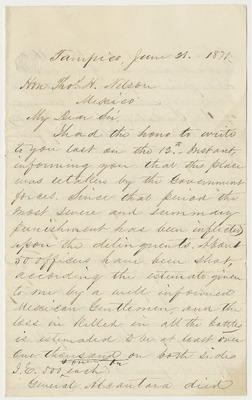 Tampico, June 21. 1871.
Hon. Thos. H. Nelson
Mexico
My Dear Sir,
I had the honor to write
to you last on the 13th Instant,
informing you that this place
was retaken by the Government
forces. Since that period the
most severe and summary
punishment has been inflicted
upon the delinquents. About
50 officers have been shot,
according the estimate given
to me by a well informed
Mexican Gentleman, and the
loss in killed in all the battles
is estimated to be at least over
one thousand on both sides
I.E. 500 each.
General Alcantara died